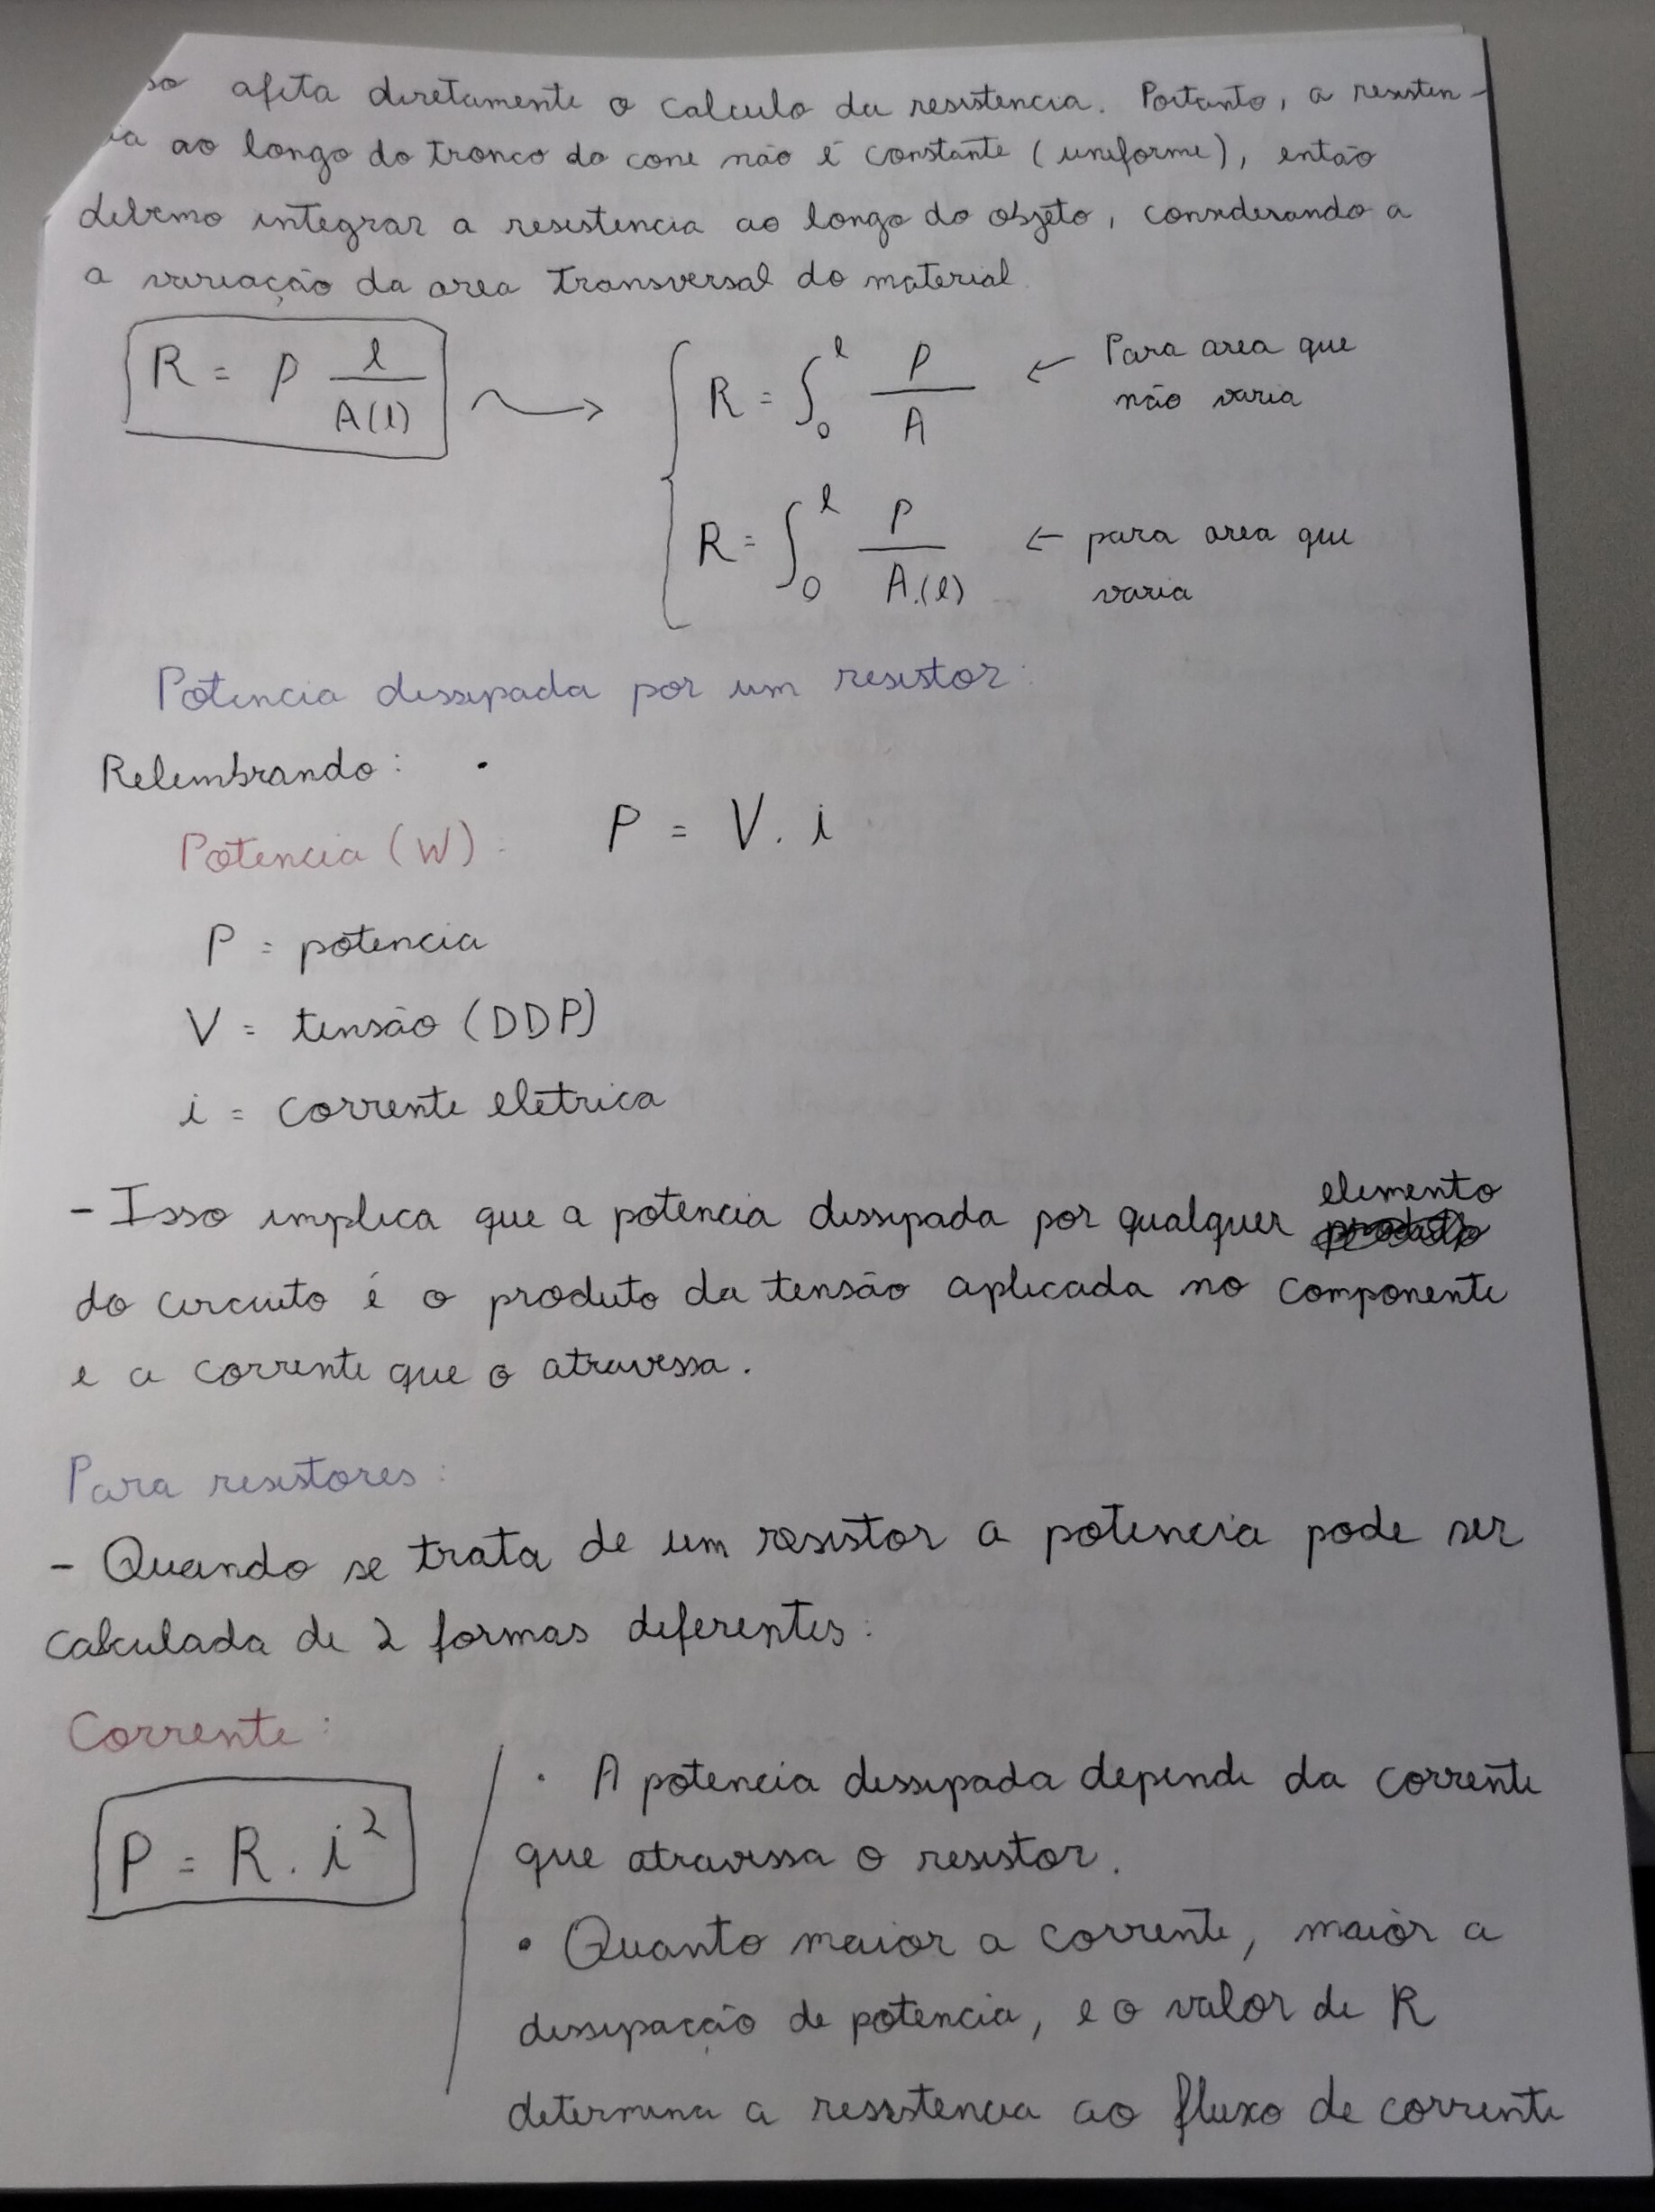 so afeta diretamente o calculo da resistencia. Portanto, a resisten-
ia ao longo do tronco do cone não é constante (uniforme), então
devemo integrar a resistencia ao longo do objeto, considerando a
a variação da area transversal do material.
R = ρ l/A(l) → { R = ∫₀ˡ ρ/A ← Para area que não varia
R = ∫₀ˡ ρ/A.(l) ← para area que varia
Potencia dissipada por um resistor:
Relembrando:
Potencia (W): P = V. i
P = potencia
V = tensão (DDP)
i = corrente eletrica
- Isso implica que a potencia dissipada por qualquer elemento
do circuito é o produto da tensão aplicada no componente
e a corrente que o atravessa.
Para resistores:
- Quando se trata de um resistor a potencia pode ser
calculada de 2 formas diferentes:
Corrente:
P = R. i²
• A potencia dissipada depende da corrente
que atravessa o resistor.
• Quanto maior a corrente, maior a
dissipação de potencia, e o valor de R
determina a resistencia ao fluxo de corrente